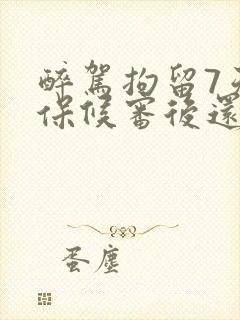 醉駕拘留7天
保候審後還
蛋塵